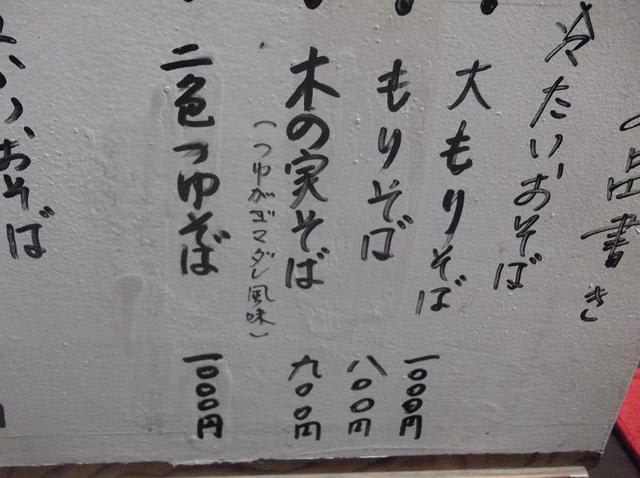 品書き
冷たいおそば
大もりそば 一〇〇〇円
もりそば 八〇〇円
木の実そば 九〇〇円
（つゆがゴマダレ風味）
二色つゆそば 一〇〇〇円
いおそば
円